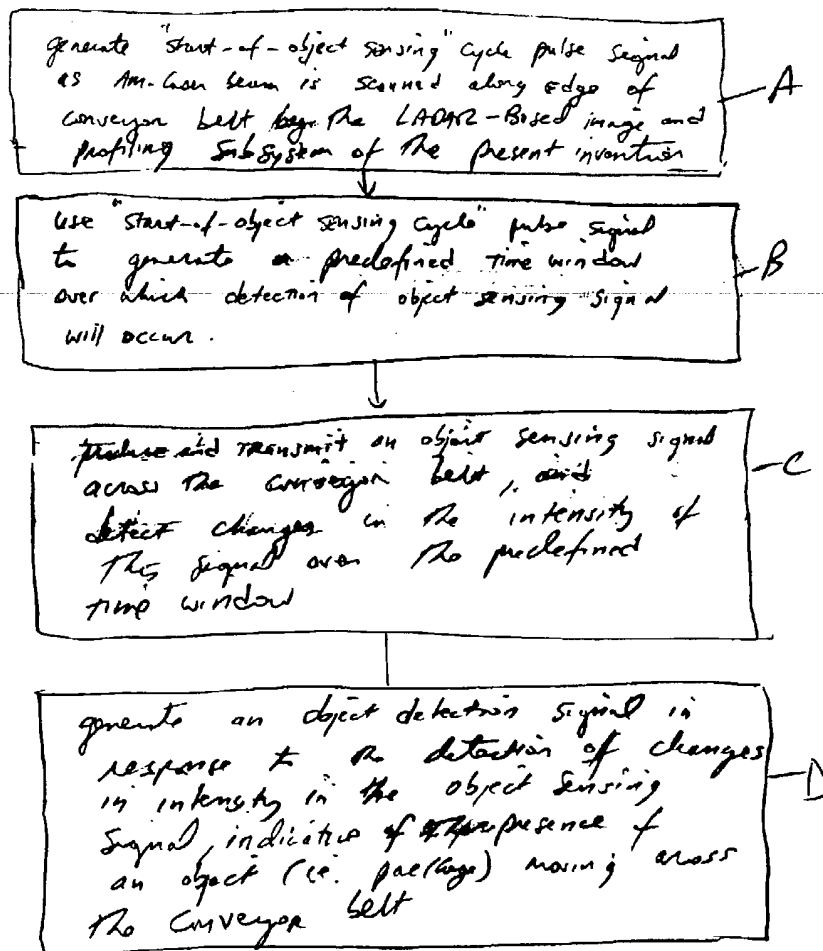 generate "start-of-object sensing" cycle pulse signal
as AM-laser beam is scanned along edge of
conveyor belt by the LADAR-Based image and
profiling Subsystem of the present invention
A
use "start-of-object sensing cycle" pulse signal
to generate a predefined time window
over which detection of object sensing signal
will occur.
B
produce and transmit an object sensing signal
across the conveyor belt, and
detect changes in the intensity of
this signal over the predefined
time window
C
generate an object detection signal in
response to the detection of changes
in intensity in the object sensing
signal, indicative of presence of
an object (i.e. package) moving across
the conveyor belt
D